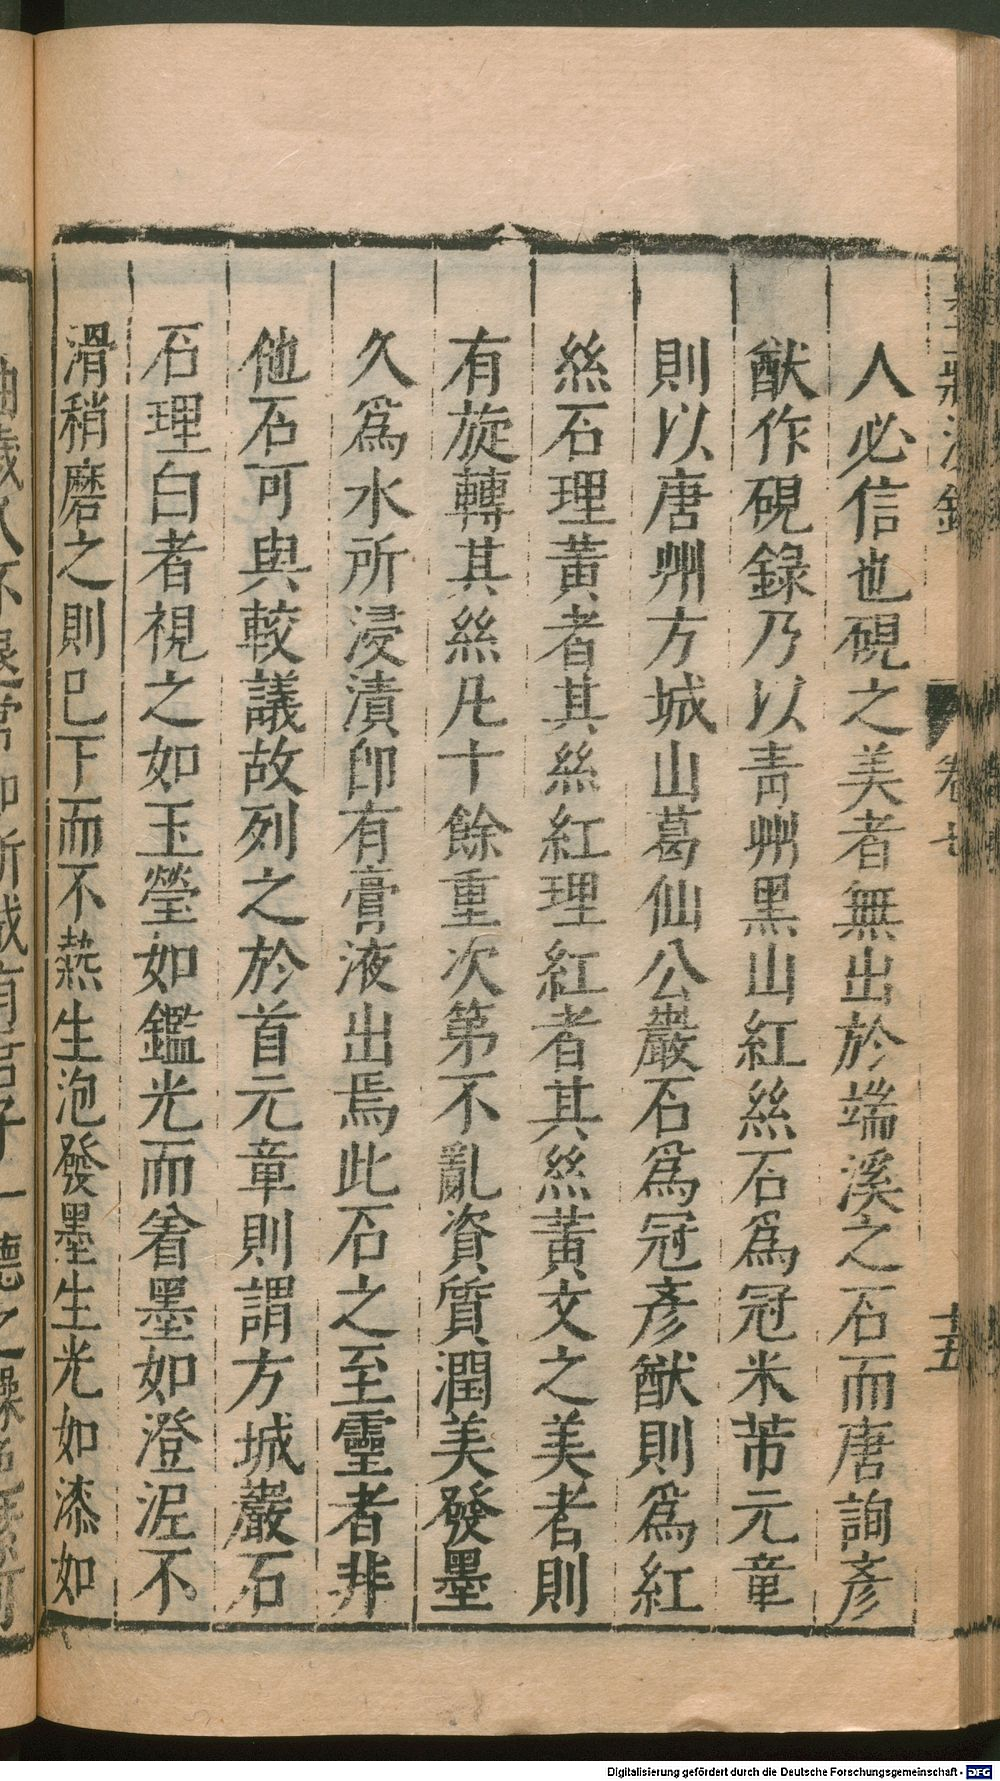 人必信也硯之美者無出於端溪之石而唐詢彥
猷作硯錄乃以青州黑山紅絲石爲冠米芾元章
則以唐州方城山葛仙公巖石爲冠彥猷則爲紅
絲石理黃者其絲紅理紅者其絲黃文之美者則
有旋轉其絲凡十餘重次第不亂資質潤美發墨
久爲水所浸漬卽有膏液出焉此石之至靈者非
他石可與較議故列之於首元章則謂方城巖石
石理白者視之如玉瑩如鑑光而着墨如澄泥不
滑稍磨之則已下而不熱生泡發墨生光如漆如
卷七
十五
Digitalisierung gefördert durch die Deutsche Forschungsgemeinschaft - DFG